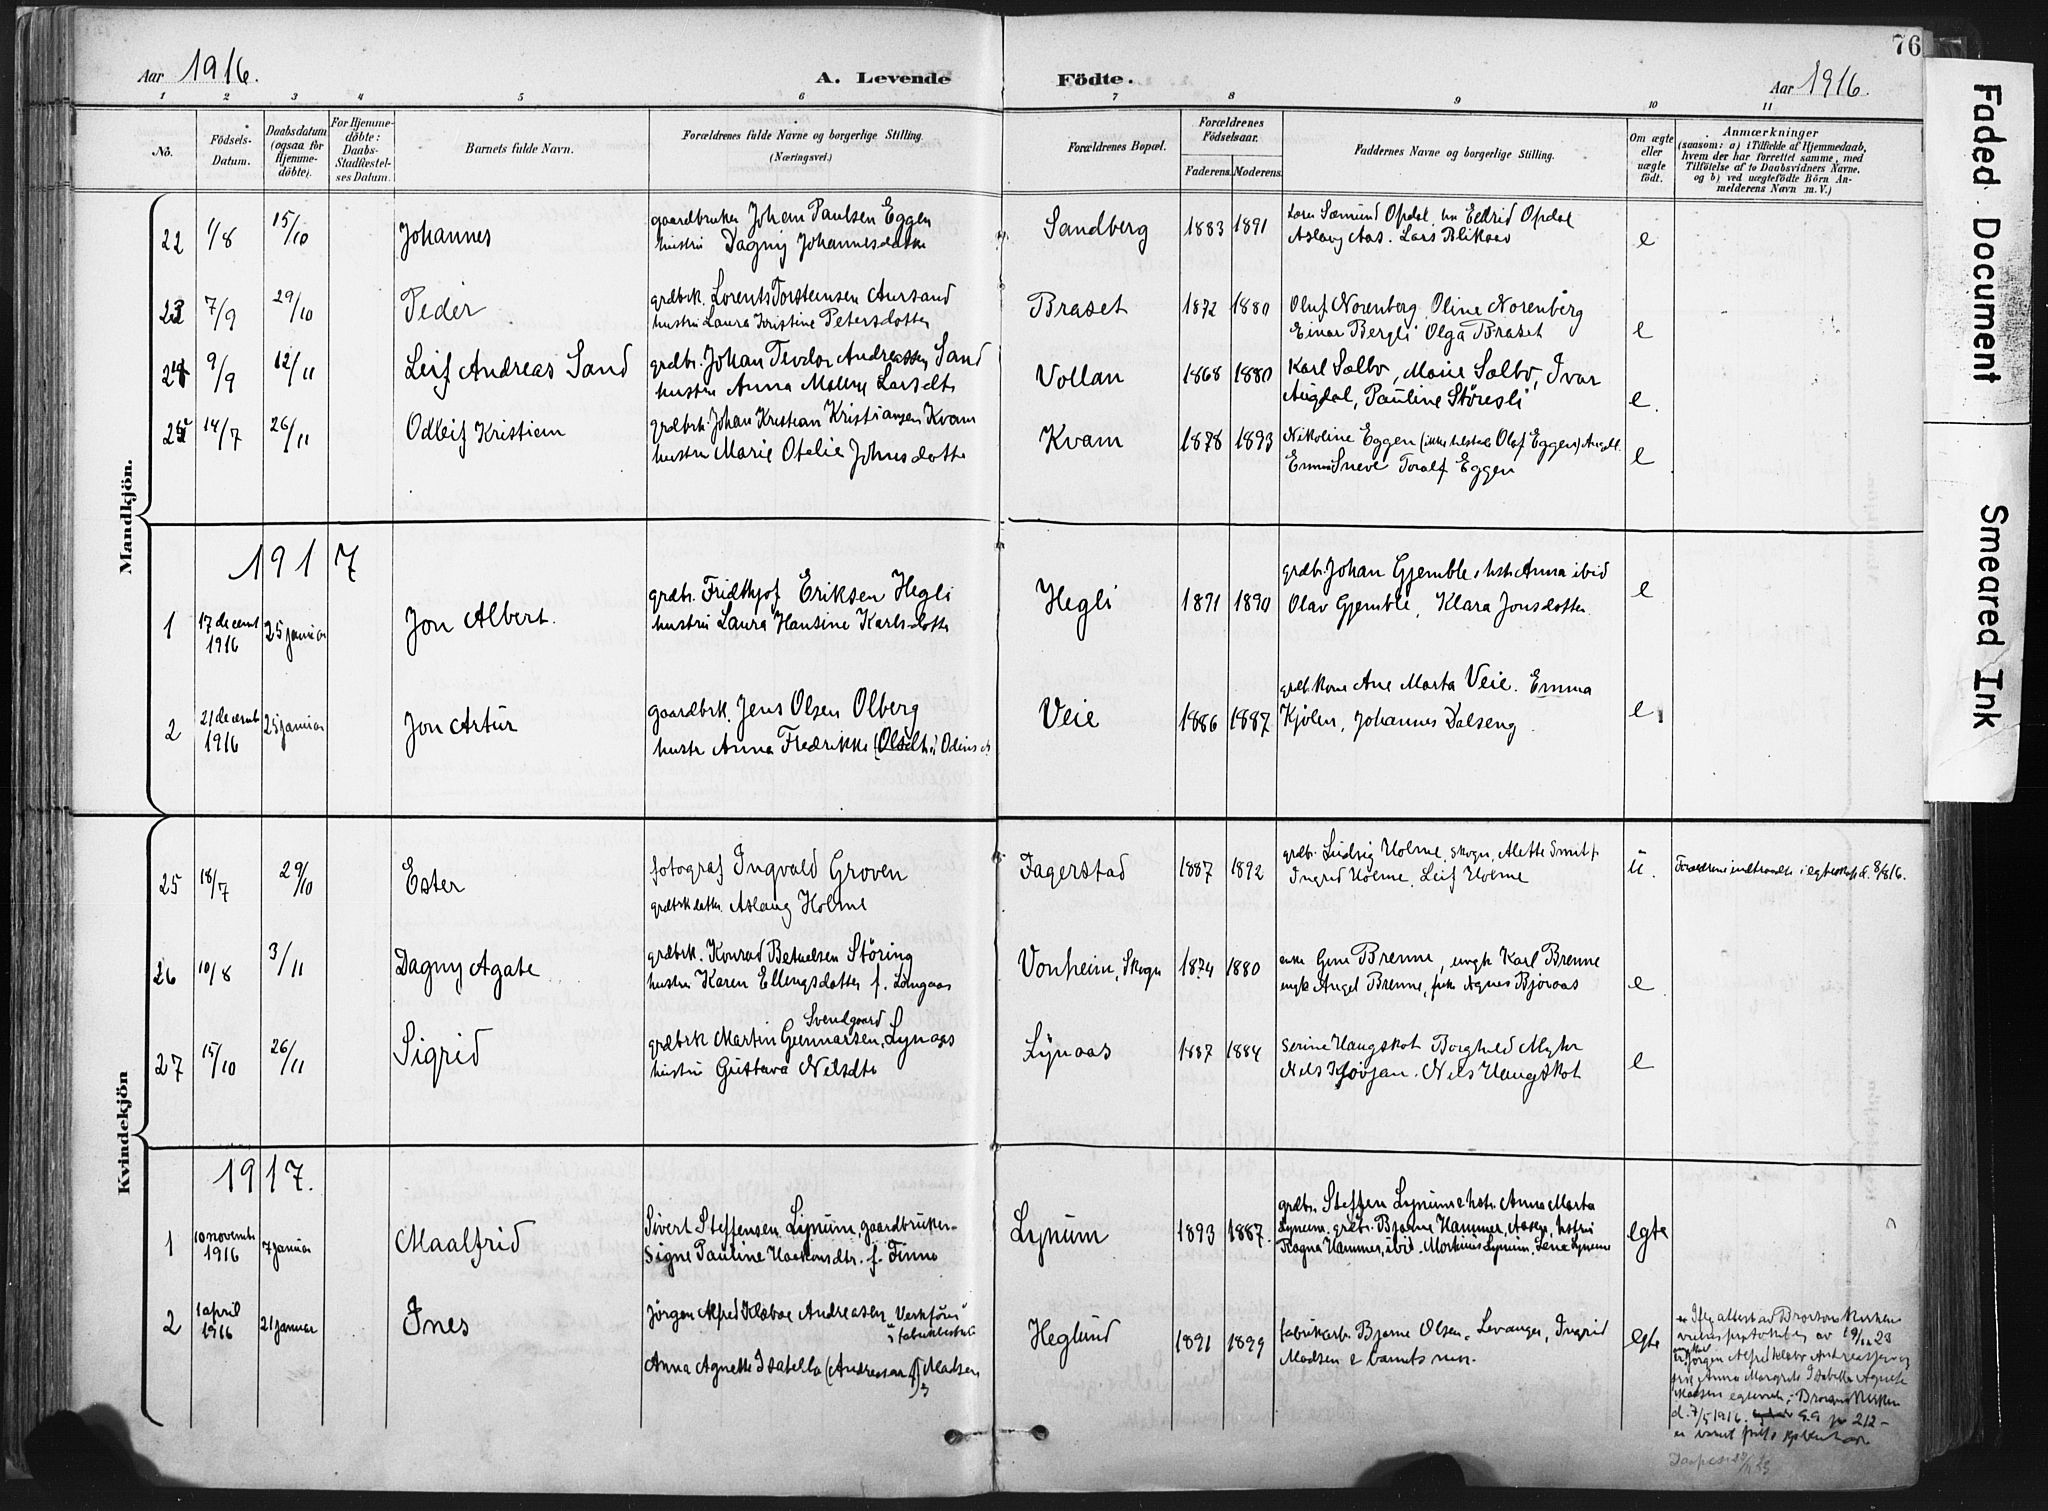 76
Aar 1916.
A. Levende
Födte.
Aar 1916.
1 2 3 4 5 6 7 8 9 10 11
No.
Födsels-
Datum.
Daabsdatum
(ogsaa for
Hjemme-
döbte).
For Hjemme-
döbte:
Daabs-
Stadfæstel-
ses Datum.
Barnets fulde Navn.
Forældrenes fulde Navne og borgerlige Stilling.
(Næringsvei.)
Forældrenes Bopæl.
Forældrenes
Födselsaar.
Faderens.
Moderens.
Faddernes Navne og borgerlige Stilling.
Om ægte
eller
uægte
födt.
Anmærkninger
(saasom: a) i Tilfælde af Hjemmedaab,
hvem der har forrettet samme, med
Tilföielse af to Daabsvidners Navne.
og b) ved uægtefödte Börn An-
melderens Navn m. V.)
Mandkjön.
22 1/8 15/10 Johannes
gaardbruker Johan Paulsen Eggen
hustru Dagny Johannesdatter
Sandberg 1883 1891
Sæmund Opdal, Eldrid Opdal
Aslaug Aas. Lars
e
23 7/9 29/10 Peder
grdbrk. Lorents Torsteinsen Aursand
hustru Laura Kristine Petersdatter
Braset 1872 1880
Oluf Norenberg, Oline Norenberg
Einar Bergli Olga Braset
e
24 9/9 12/11 Leif Andreas Sand
grdbr. Johan Teodor Andreassen Sand
hustru Anna Larsdtr
Vollan 1868 1880
Karl Salbo, Marie Salbo, Ivar
Augdal, Pauline Störesli
e.
25 14/7 26/11 Odleif Kristian
grdbrk. Johan Kristian Kristiansen Kvam
hustru Marie Otelie Johnsdatter
Kvam 1878 1893
Nikoline Eggen (ikke tilstede Olaf Eggen)
Emma Sneve Toralf Eggen
e
1917
1 17 decemb 1916 25 januar Jon Albert.
grdbr. Fridthjof Eriksen Hegli
hustru Laura Hansine Karlsdatter
Hegli 1891 1890
grdbr. Johan Gjemble & hstr. Anna ibid
Olav Gjemble, Klara Jonsdatter
e
2 21 decemb 1916 25 januar Jon Artur
gaardbrk. Jens Olsen Olberg
hustr Anna Fredrikke (Olsdtr.)
Veie 1886 1887
grdb.kone Ane Marta Veie. Emma
Kjölen, Johannes Dalseng
e
Kvindekjön
25 18/7 29/10 Ester
fotograf Ingvald Groven
grdbrkdatter Aslaug Holme
Fagerstad 1887 1892
grdbr. Ludvig Holme, Skogn, Alette
Ingrid Holme, Leif Holme
u.
Forældrene indtraadte i egteskap d. 8/8 16.
26 10/8 3/11 Dagny Agate
grdbrk. Konrad Betuelsen Störing
hustru Karen Ellingsdatter f. Lüngaas
Vonheim, Skogn 1874 1880
enke Gina Brenne, ungk Karl Brenne
ungk Angel Brenne, pike Agnes Bjøraas
e
27 15/10 26/11 Sigrid
Svendgaard
grdbrk Martin Gunnarsen, Lynaas
hustru Gustava Nelsdtr
Lynaas 1887 1884
Serine Haugskot Borghild Myhr
Nels Haugskot
e
1917.
1 10 novemb 1916 7 januar Maalfrid
Sivert Steffensen Lynum gaardbruker
Signe Pauline Haakonsdtr. f. Finno
Lynum 1893 1887.
grdbr. Steffen Lynum & hstr. Anna Marta
Lynum, grdbr. Bjarne Hammer, Aasen, hustru
Ragna Hammer, ibid. Martinus Lynum, Lena Lynum
egte
2 1 april 1916 21 januar Ines
Jørgen Alfred Klæboe Andreasen Verkfører
i fabrikarbeid
Anna Agnette Isabella (Andreasen f.) Madsen
Heglund 1891 1899
fabrikarb. Bjarne Olsen, Levanger, Ingrid
Madsen & barnets mor.
egte
Ifølg attest av Brorsons Kirkes
av 19/11 23
Jørgen Alfred Klæbo Andreasen og
Anna Margrete Isabella Agnete
Madsen egteviet i Brorsons Kirken
d. 7/5 1916.
er barnet født i København
Faded Document
Smeared Ink